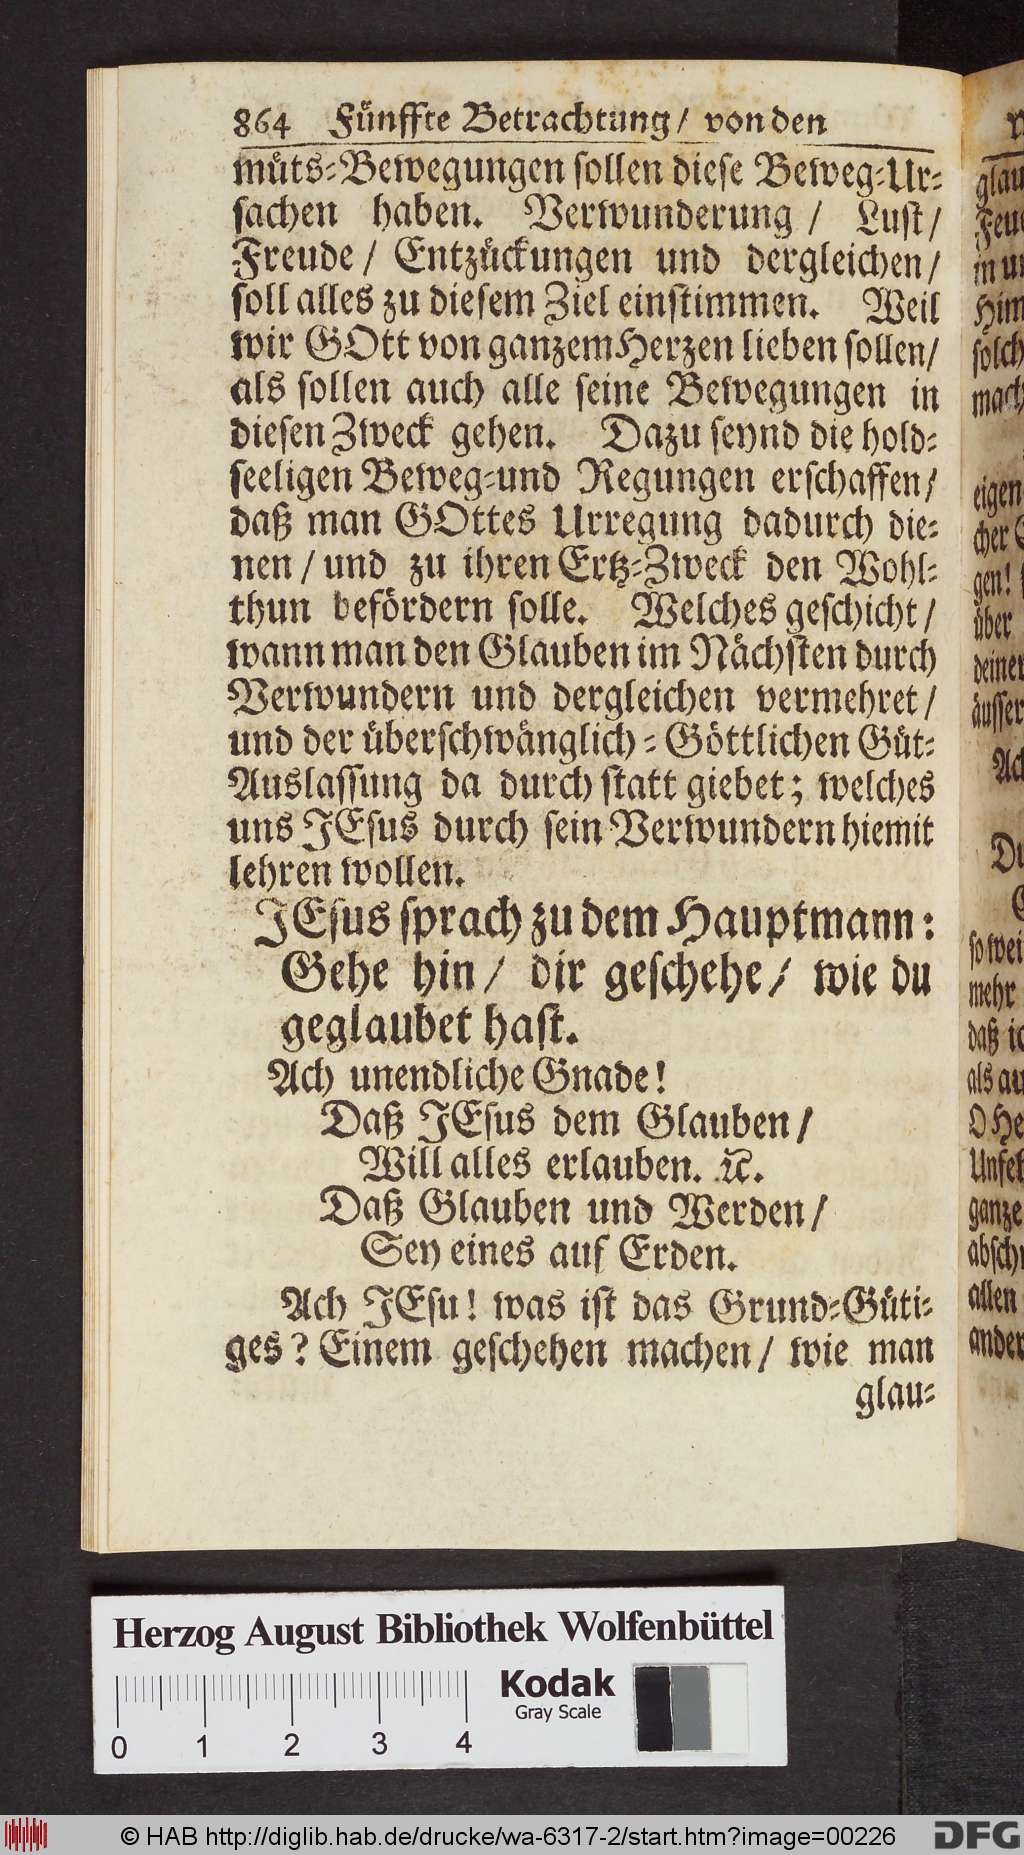 864 Fünffte Betrachtung / von den
müts-Bewegungen sollen diese Beweg-Ur-
sachen haben. Verwunderung / Lust /
Freude / Entzückungen und dergleichen /
soll alles zu diesem Ziel einstimmen. Weil
wir GOtt von ganzem Herzen lieben sollen /
als sollen auch alle seine Bewegungen in
diesen Zweck gehen. Dazu seynd die hold-
seeligen Beweg-und Regungen erschaffen /
daß man GOttes Urregung dadurch die-
nen / und zu ihren Ertz-Zweck den Wohl-
thun befördern solle. Welches geschicht /
wann man den Glauben im Nächsten durch
Verwundern und dergleichen vermehret /
und der überschwänglich-Göttlichen Güt-
Auslassung da durch statt giebet; welches
uns JEsus durch sein Verwundern hiemit
lehren wollen.
JEsus sprach zu dem Hauptmann:
Gehe hin / dir geschehe / wie du
geglaubet hast.
Ach unendliche Gnade!
Daß JEsus dem Glauben /
Will alles erlauben. ꝛc.
Daß Glauben und Werden /
Sey eines auf Erden.
Ach JEsu! was ist das Grund-Güti-
ges? Einem geschehen machen / wie man
glau-
glau
Him
solch
mach
eigen
cher
gen!
über
deiner
äusser
Ach
so wei
mehr
daß ic
als au
O He
Unfel
ganze
absch
allen
ander
Herzog August Bibliothek Wolfenbüttel
Kodak
Gray Scale
0 1 2 3 4
© HAB http://diglib.hab.de/drucke/wa-6317-2/start.htm?image=00226
DFG